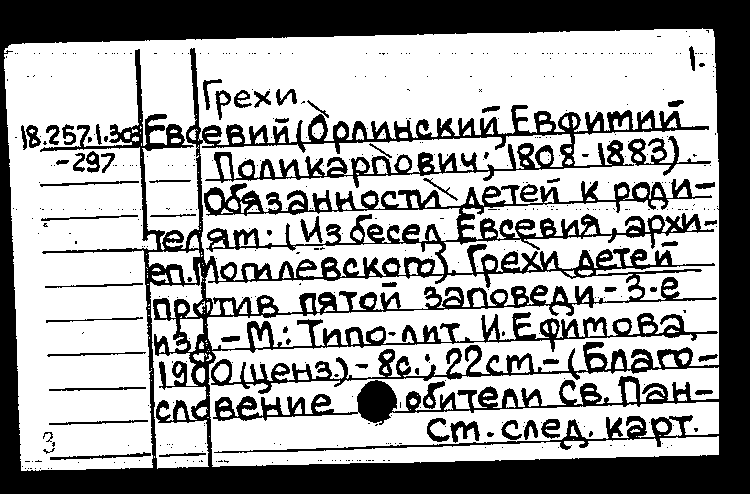 1.
Грехи
18.257.1.303 Евсевий (Орлинский, Евфимий
-297 Поликарпович; 1808-1883).
Обязанности детей к роди-
телям: (Из бесед Евсевия, архи-
еп. Могилевского). Грехи детей
против пятой заповеди. - 3-е
изд. - М.: Типо-лит. И. Ефимова,
1900 (ценз.). - 8с.; 22см. - (Благо-
словение обители Св. Пан-
См. след. карт.
3